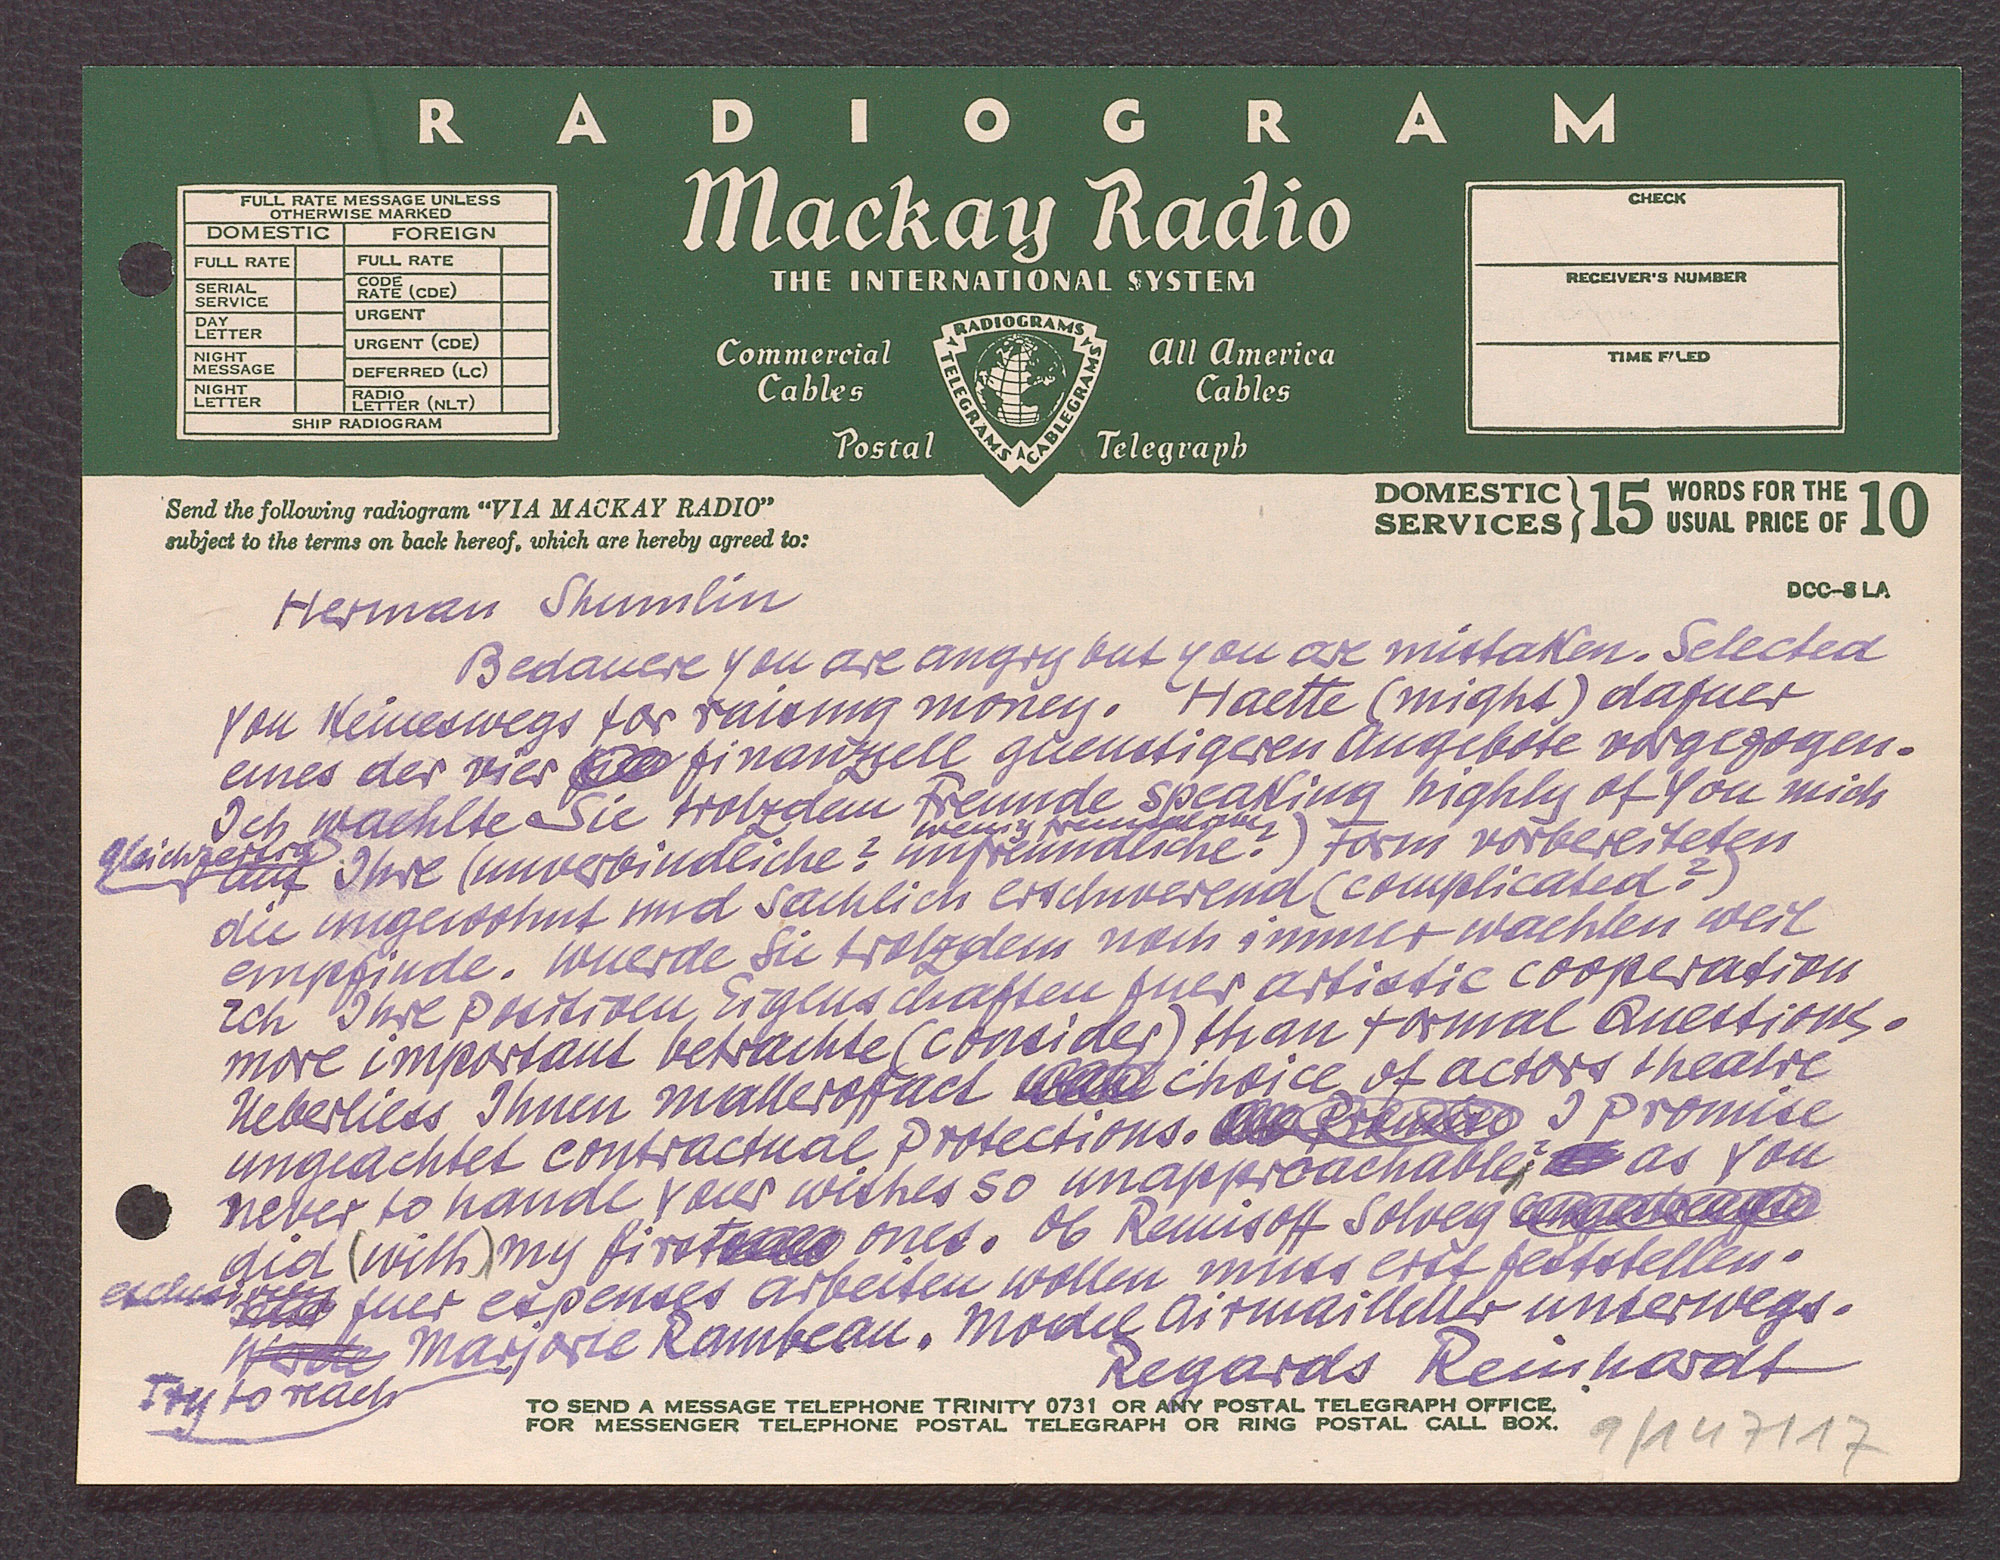 RADIOGRAM
Mackay Radio
THE INTERNATIONAL SYSTEM
Commercial Cables
All America Cables
Postal Telegraph
RADIOGRAMS TELEGRAMS CABLEGRAMS
FULL RATE MESSAGE UNLESS
OTHERWISE MARKED
DOMESTIC FOREIGN
FULL RATE FULL RATE
SERIAL SERVICE CODE RATE (CDE)
DAY LETTER URGENT
NIGHT MESSAGE URGENT (CDE)
NIGHT LETTER DEFERRED (LC)
RADIO LETTER (NLT)
SHIP RADIOGRAM
CHECK
RECEIVER'S NUMBER
TIME FILED
Send the following radiogram “VIA MACKAY RADIO”
subject to the terms on back hereof, which are hereby agreed to:
DOMESTIC SERVICES } 15 WORDS FOR THE USUAL PRICE OF 10
DCC-S LA
Herman Shumlin
Bedauere you are angry but you are mistaken. Selected
you keineswegs for raising money. Haette (might) dafuer
eines der vier finanziell guenstigeren Angebote vorgezogen.
Ich waehlte Sie trotzdem Freunde speaking highly of You mich
gleichzeitig auf Ihre (unverbindliche? wenig freundliche? unfreundliche?) Form vorbereiteten
die ungewohnt und sachlich erschwerend (complicated?)
empfinde. Wuerde Sie trotzdem noch immer waehlen weil
Ich Ihre positiven Eigenschaften fuer artistic cooperation
more important betrachte (consider) than formal Questions.
Ueberliess Ihnen matteroffact choice of actors theatre
ungeachtet contractual protections. I promise
never to handle your wishes so unapproachable? as You
did (with) my first ones. Ob Remisoff Solveg
fuer expenses arbeiten wollen muss erst feststellen.
Try to reach Marjorie Rambeau. Model Airmailletter unterwegs.
Regards Reinhardt
TO SEND A MESSAGE TELEPHONE TRINITY 0731 OR ANY POSTAL TELEGRAPH OFFICE,
FOR MESSENGER TELEPHONE POSTAL TELEGRAPH OR RING POSTAL CALL BOX.
9/147117